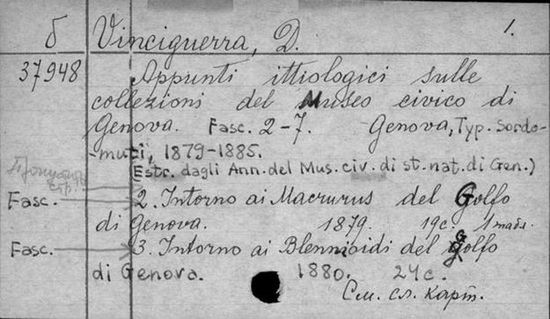 б Vinciguerra, D. 1.
37948 Appunti ittiologici sulle
collezioni del Museo civico di
Genova. Fasc. 2-7. Genova, Typ. Sordo-
-muti, 1879-1885.
(Estr. dagli Ann. del Mus. civ. di st. nat. di Gen.)
Fasc. 2. Intorno ai Macrurus del Golfo
di Genova. 1879. 19c. 1 табл.
Fasc. 3. Intorno ai Blennioidi del golfo
di Genova. 1880. 24c.
См. сл. карт.